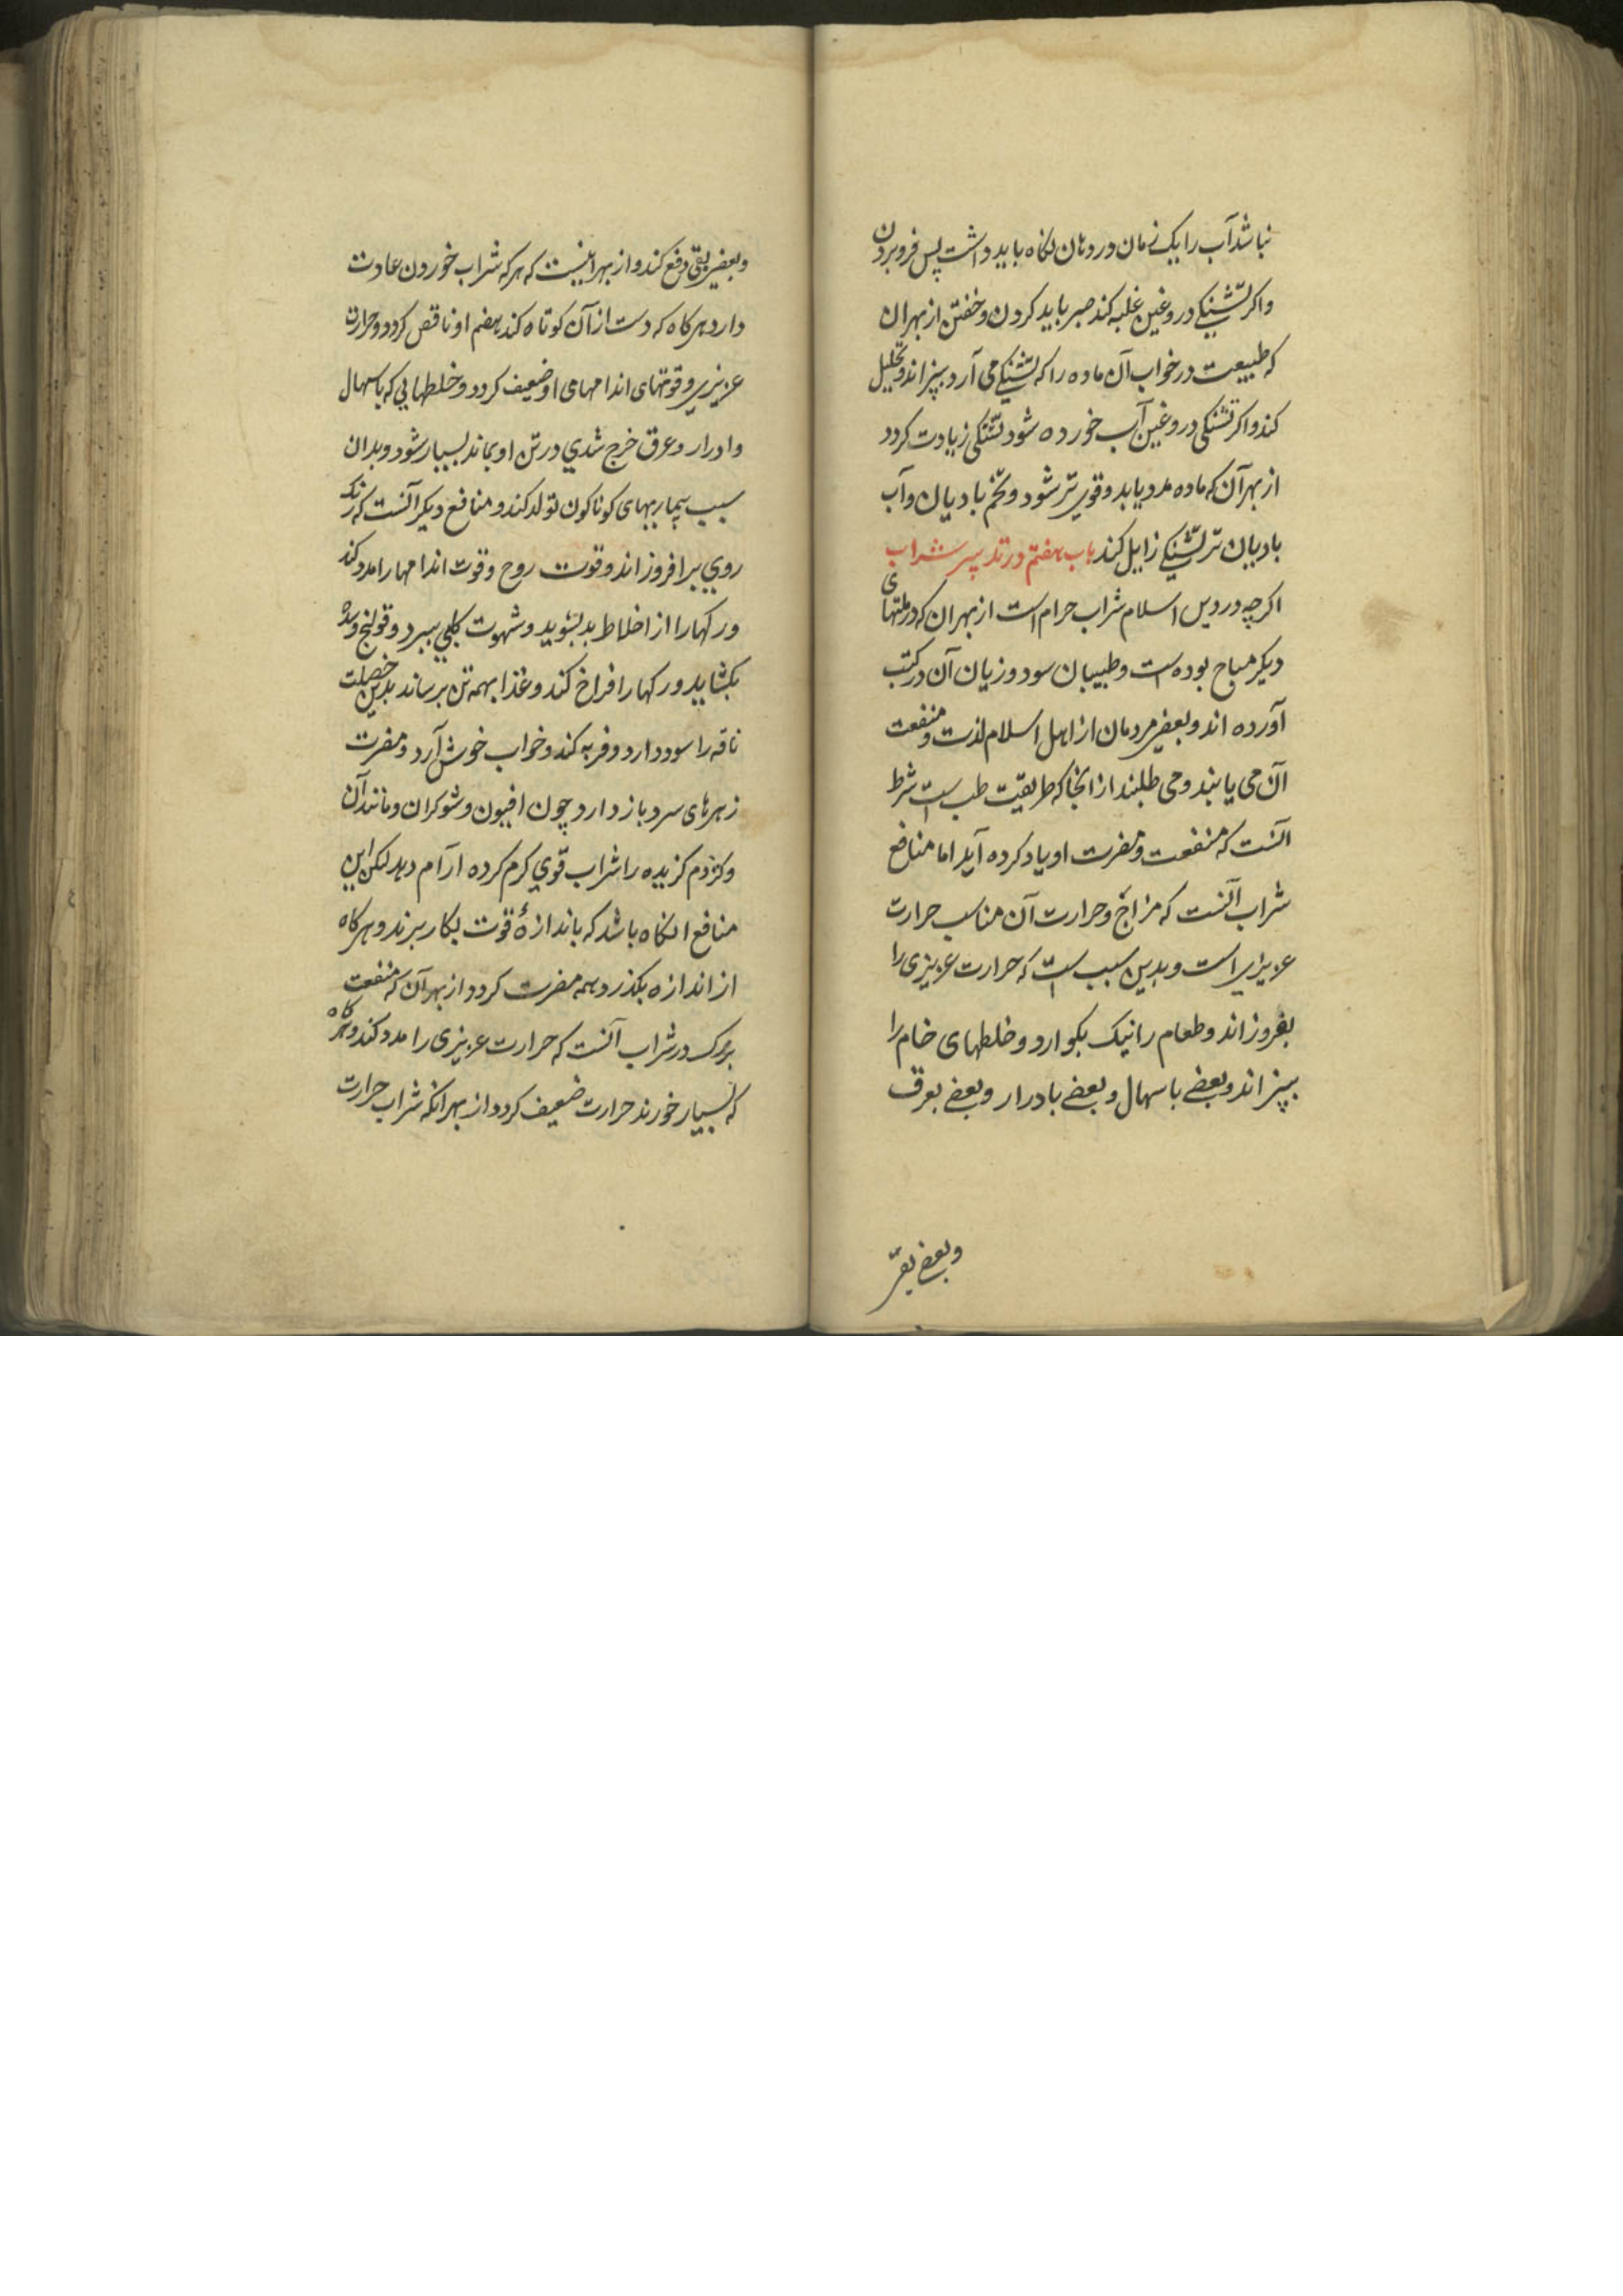 نباشد آب را یک زمان در دهان نگاه باید داشت پس فرو بردن
و اگر تشنگی دروغین غلبه کند صبر باید کردن و خفتن از بهر آن
که طبیعت در خواب آن ماده را که تشنگی می آرد بپزاند و تحلیل
کند و اگر تشنگی دروغین آب خورده شود تشنگی زیادت گردد
از بهر آن که ماده مدد یابد و قوی تر شود و تخم بادیان و آب
بادیان تر تشنگی زایل کند باب هفتم در تدبیر شراب
اگر چه در دین اسلام شراب حرام است از بهر ان که در ملتهای
دیگر مباح بوده است و طبیبان سود و زیان آن در کتب
آورده اند و بعضی مردمان از اهل اسلام لذت و منفعت
آن می یابند و می طلبند از انجا که طریقت طب است شرط
آنست که منفعت و مضرت او یاد کرده آید اما منافع
شراب آنست که مزاج و حرارت آن مناسب حرارت
عزیزی است و بدین سبب است که حرارت عزیزی را
بفروزاند و طعام را نیک بگوارد و خلطهای خام را
بپزاند و بعضی باسهال و بعضی بادرار و بعضی بعرق
و بعضی بقی
و بعضی بقی دفع کند و از بهر اینست که هر که شراب خوردن عادت
دارد هر گاه که دست از آن کوتاه کند هضم او ناقص گردد و حرارت
عزیزی و قوتهای اندامهای او ضعیف گردد و خلطهایی که باسهال
و ادرار و عرق خرج شدی در تن او بماند بسیار شود و بدان
سبب بیماریهای گوناگون تولد کند و منافع دیگر آنست که رنگ
روی برافروزاند و قوت روح و قوت اندامها را مدد کند
و رگها را از اخلاط بد بشوید و شهوت کلبی ببرد و قولنج و سده
بگشاید و رگها را فراخ کند و غذا بهمه تن برساند بدین خصلت
ناقه را سود دارد و فربه کند و خواب خوش آرد و مضرت
زهرهای سرد باز دارد چون افیون و شوکران و مانند آن
و کژدم گزیده را شراب قوی گرم کرده آرام دهد لکن این
منافع انگاه باشد که باندازهٔ قوت بکار برند و هر گاه
از اندازه بگذرد همه مضرت گردد از بهر آن که منفعت
بزرگ در شراب آنست که حرارت عزیزی را مدد کند و هر گاه
که بسیار خورند حرارت ضعیف گردد از بهر انکه شراب حرارت